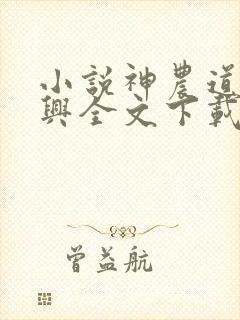 小説神農道
興全文下載
曾益航